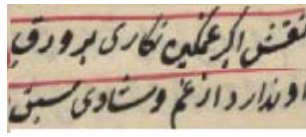 نقش اگر غمگین نگاری بر ورق
او ندارد از غم و شادی سبق